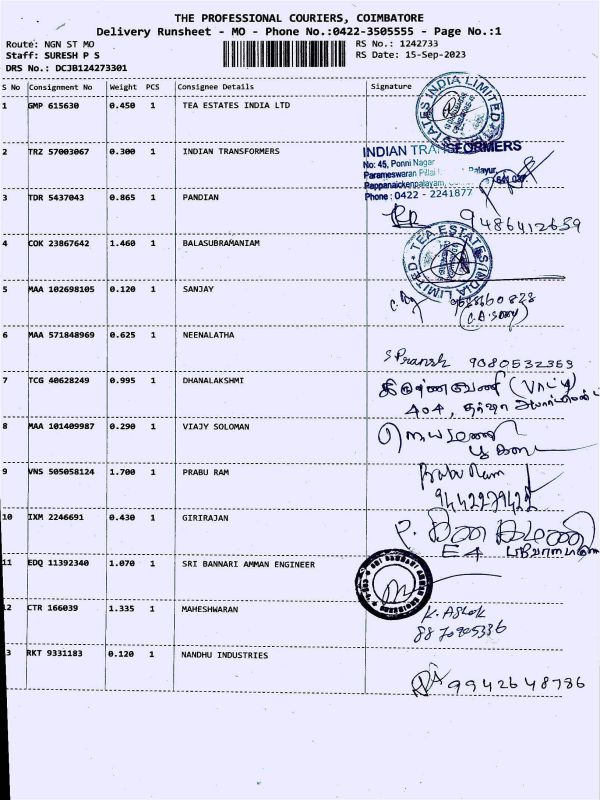 THE PROFESSIONAL COURIERS, COIMBATORE
Delivery Runsheet - MO - Phone No.:0422-3505555 - Page No.:1
Route: NGN ST MO
RS No.: 1242733
Staff: SURESH P S
RS Date: 15-Sep-2023
DRS No.: DCJB124273301
S No Consignment No Weight PCS Consignee Details Signature
1 GMP 615630 0.450 1 TEA ESTATES INDIA LTD
TEA ESTATES INDIA LIMITED
2 TRZ 57003067 0.300 1 INDIAN TRANSFORMERS
INDIAN TRANSFORMERS
No: 45, Ponni Nagar
Parameswaran Pillai
Pappanaickenpalayam,
Phone : 0422 - 2241877
3 TDR 5437043 0.865 1 PANDIAN
9486412659
4 COK 23867642 1.460 1 BALASUBRAMANIAM
TEA ESTATES INDIA LIMITED
5 MAA 102698105 0.120 1 SANJAY
6 MAA 571848969 0.625 1 NEENALATHA
9080532353
7 TCG 40628249 0.995 1 DHANALAKSHMI
404,
8 MAA 101409987 0.290 1 VIAJY SOLOMAN
9 VNS 505058124 1.700 1 PRABU RAM
Prabu Ram
10 IXM 2246691 0.430 1 GIRIRAJAN
E4
11 EDQ 11392340 1.070 1 SRI BANNARI AMMAN ENGINEER
12 CTR 166039 1.335 1 MAHESHWARAN
K. Ashok
3 RKT 9331183 0.120 1 NANDHU INDUSTRIES
9942648786